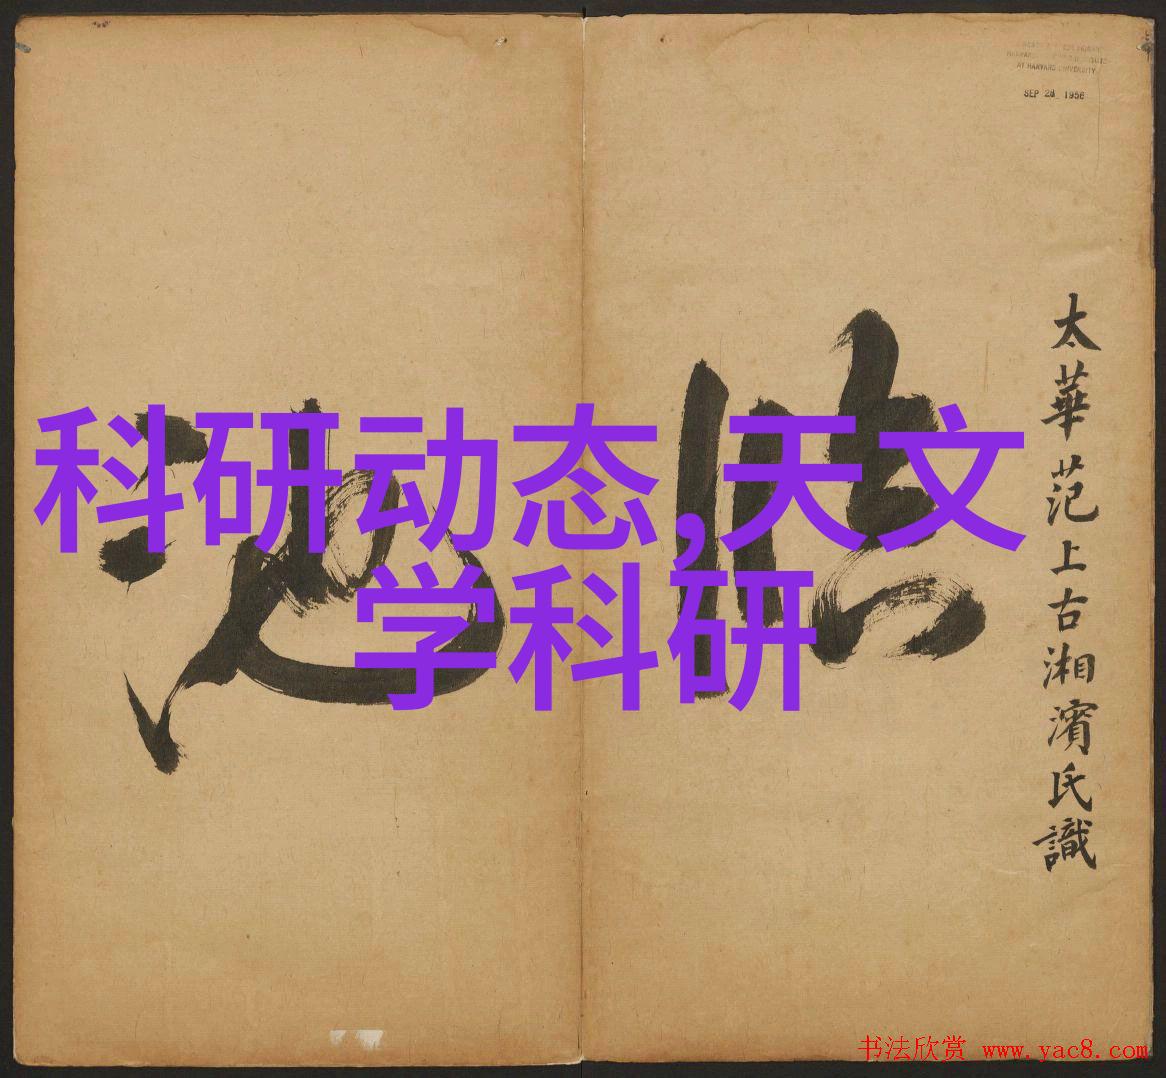 AT HARVARD UNIVERSITY
SEP 28 1956
科研动态,天文
学科研
太華范上古湘濱氏識
书法欣赏 www.yac8.com